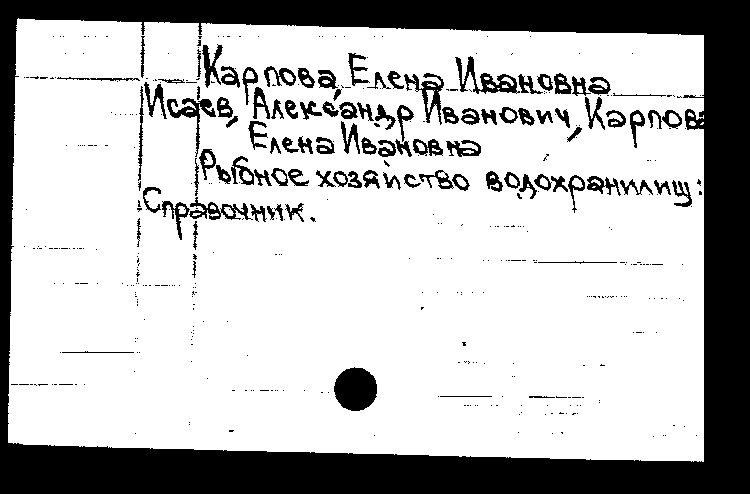 Карпова Елена Ивановна
Исаев, Александр Иванович, Карпова
Елена Ивановна
Рыбное хозяйство водохранилищ:
Справочник.